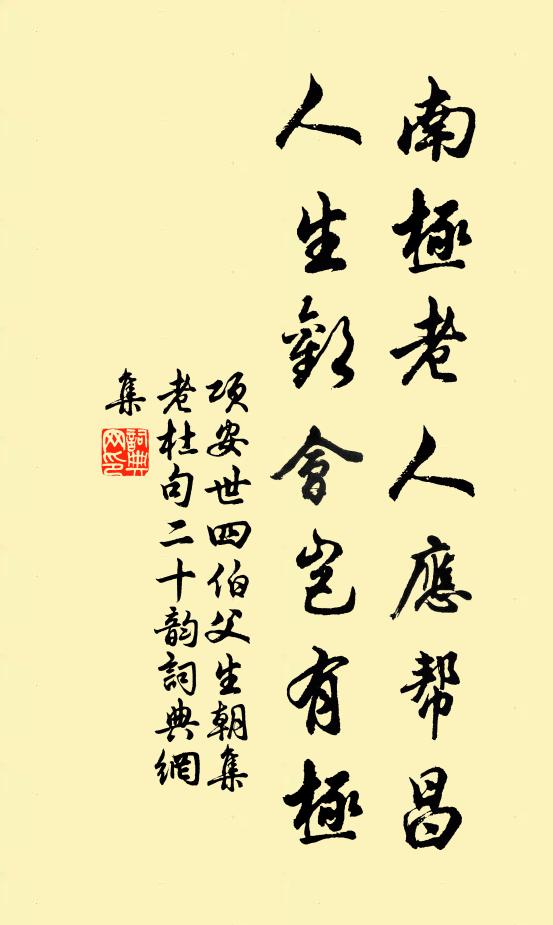 南極老人應帮昌
人生歡會岂有極
项安世四伯父生朝集
老杜句二十韵詞典網
集
詞典网印